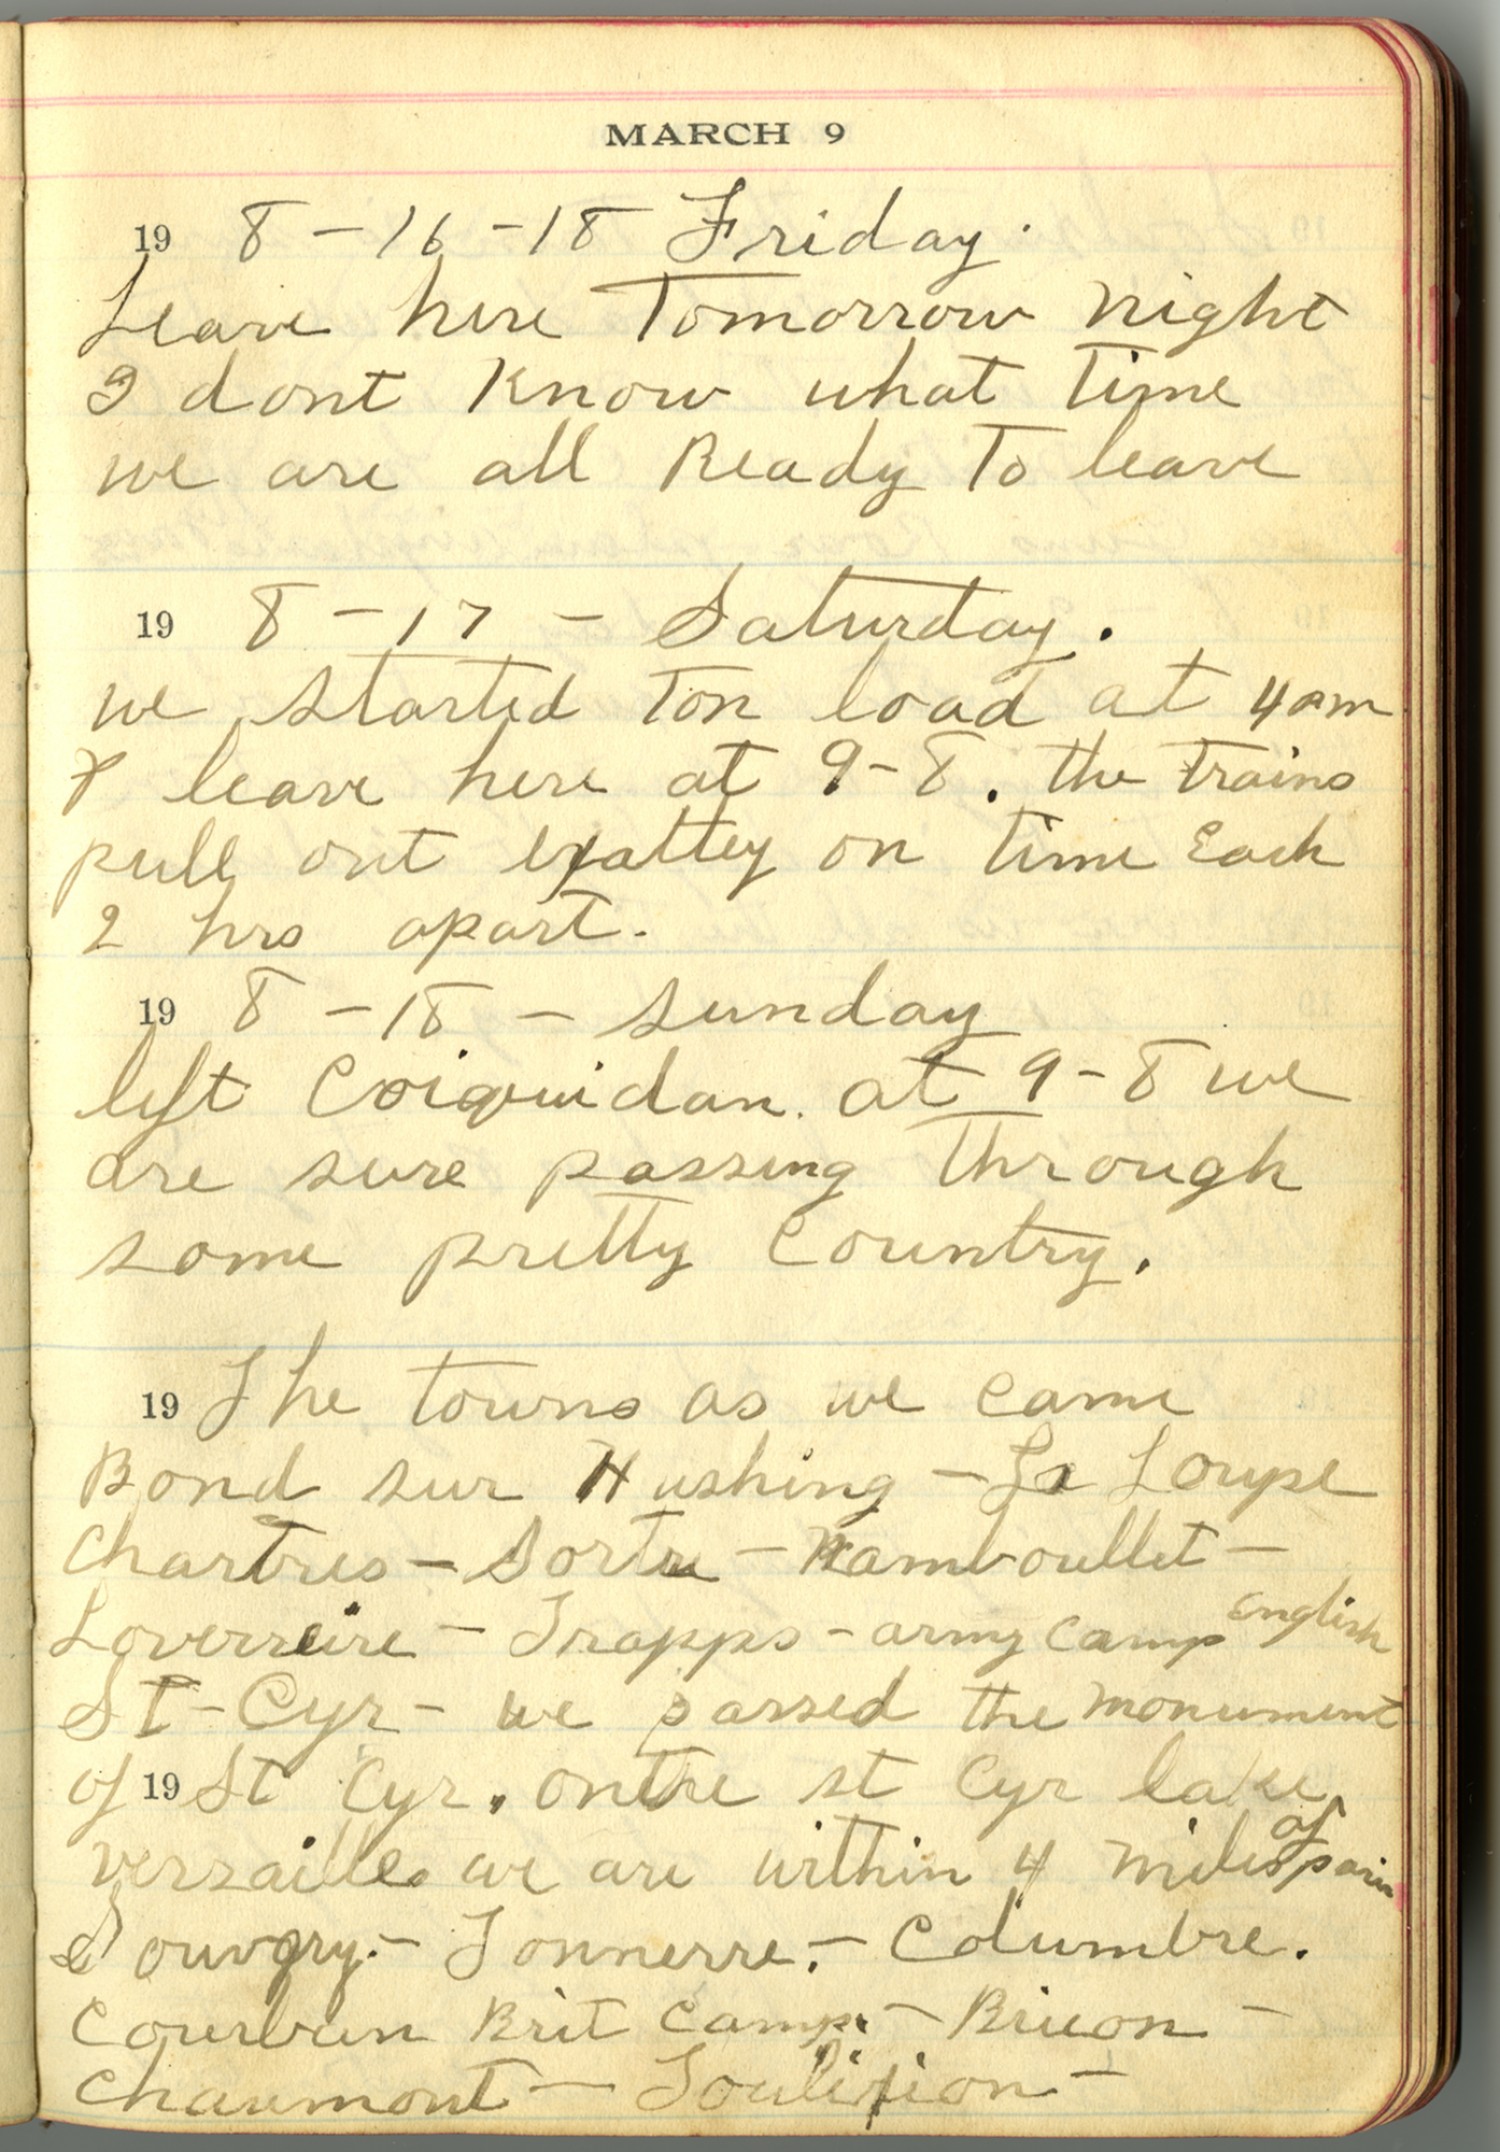 MARCH 9
19 8-16-18 Friday.
Leave here Tomorrow night
I dont Know what Time
we are all Ready To leave
19 8-17- Saturday.
we started Ton load at 4am
& leave here at 9-8. the trains
pull out exattey on time Each
2 hrs apart.
19 8-18- Sunday
left Coiquidan. at 9-8 we
are sure passing Through
some pretty Country.
19 The towns as we came
Bond sur Hushing - La Loupe
Chartres - - Ramboullet -
Loverreire - Trapps - army Camp English
St-Cyr- we passed the monument
of 19 St Cyr. St Cyr lake
versailles we are within 4 miles of paris
- Tonnerre. - Columbre.
Courbun Brit Camp. - Bricon -
Chaumont -